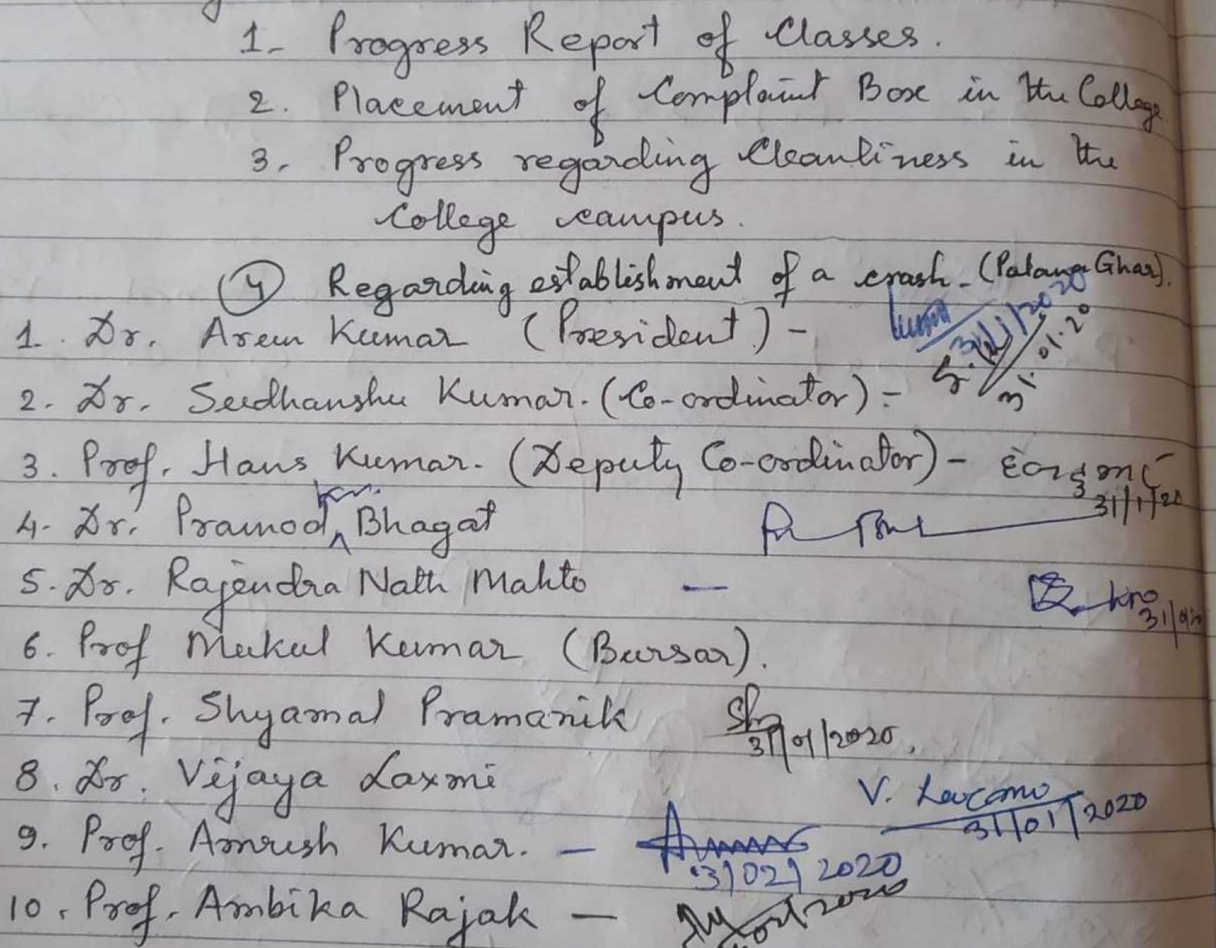 1- Progress Report of Classes.
2. Placement of Complaint Box in the College
3. Progress regarding Cleanliness in the
College campus.
4 Regarding establishment of a crash - (Palana Ghar).
1. Dr. Arun Kumar (President) - 31/1/2020
2. Dr. Sudhanshu Kumar. (Co-ordinator) - 31.01.20
3. Prof. Hans Kumar. (Deputy Co-ordinator) - 31/1/20
4. Dr. Pramod Bhagat
5. Dr. Rajendra Nath Mahto -
6. Prof Mukul Kumar (Bursar).
7. Prof. Shyamal Pramanik 31/01/2020.
8. Dr. Vijaya Laxmi V. 31/01/2020
9. Prof. Amresh Kumar. - 31021 2020
10. Prof. Ambika Rajak -